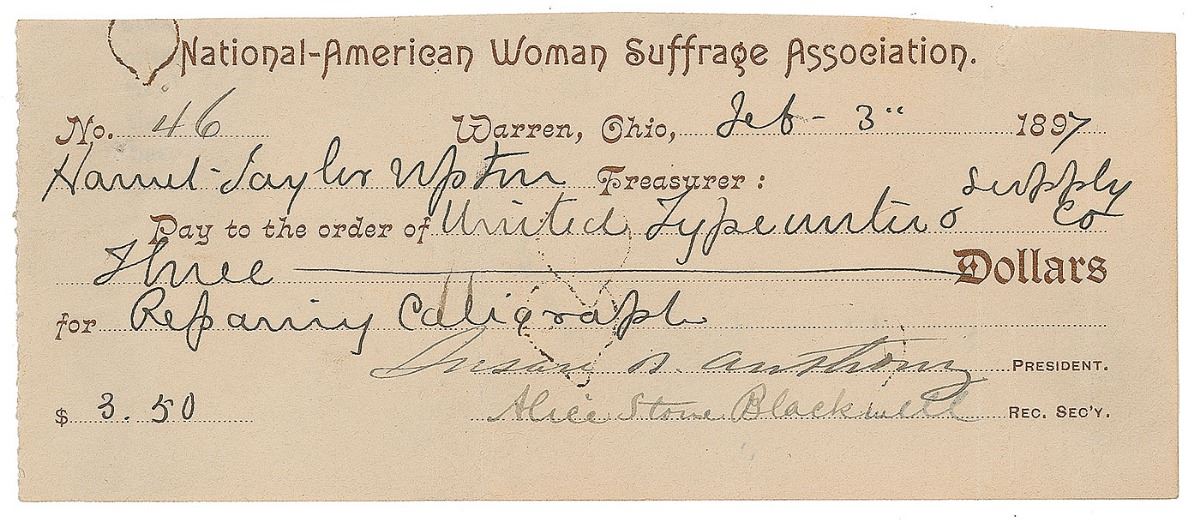 National-American Woman Suffrage Association.
No. 46 Warren, Ohio, Feb - 3" 1897
Harriet Taylor Upton Treasurer:
Pay to the order of United Typewriter & Supply Co
Three Dollars
for Repairing Caligraph
Susan B. Anthony PRESIDENT.
$ 3.50 Alice Stone Blackwell REC. SEC'Y.